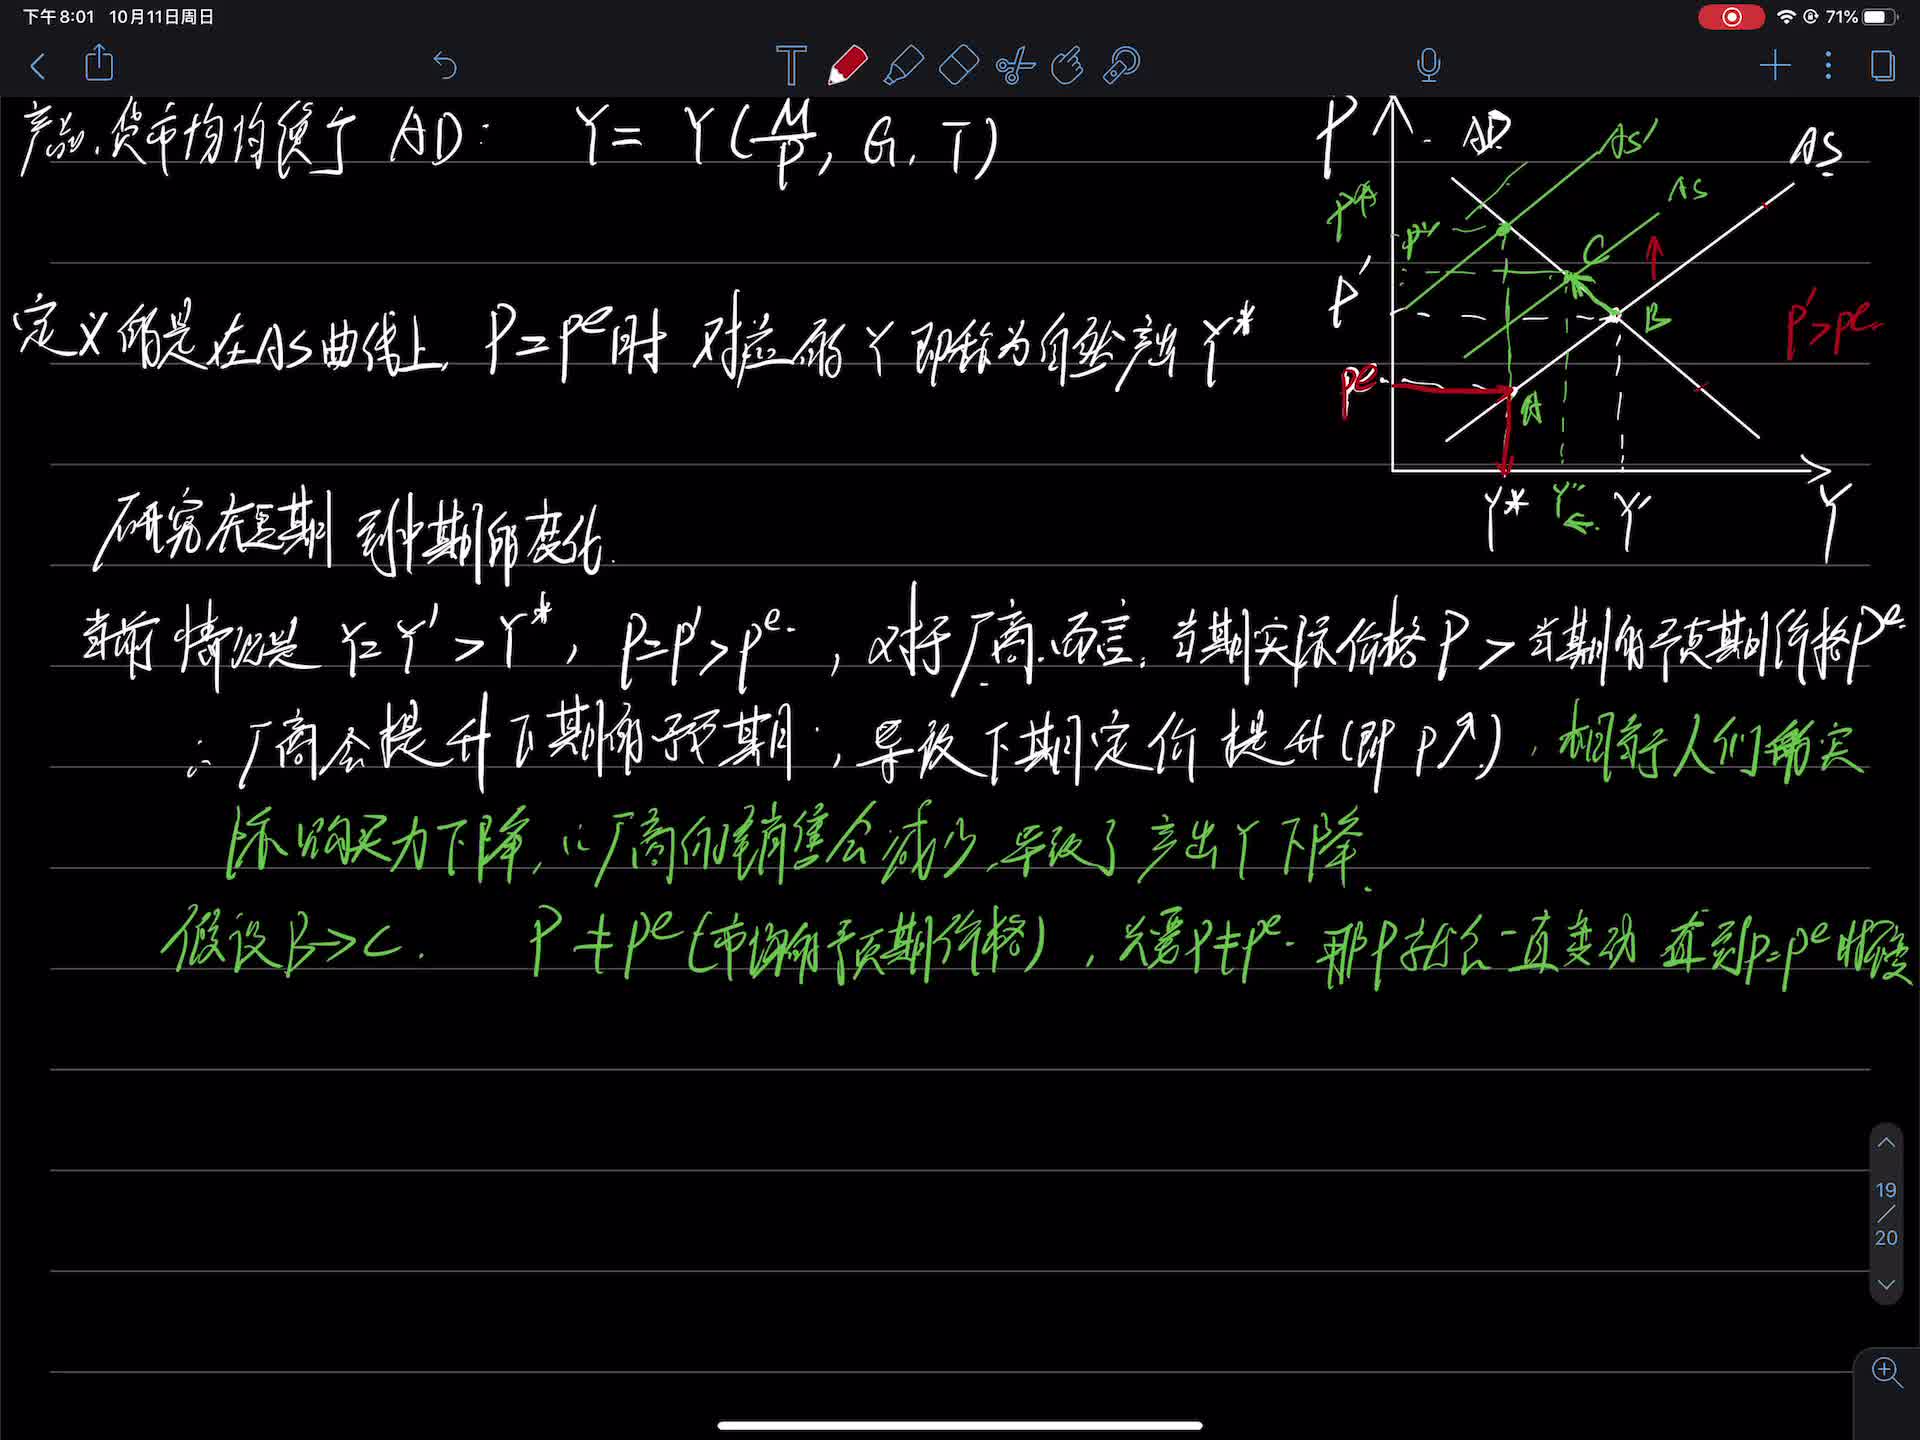 下午8:01 10月11日周日
71%
产品、货币均均衡于 AD: Y = Y(M/P, G, T)
P AD AS' AS
AS
P'' C
P' B P'>Pe
定义的是在AS曲线上, P=Pe时 对应的Y即称为自然产出Y*
Pe A
Y* Y'' Y' Y
研究在短期到中期的变化.
当前情况是 Y=Y'>Y*, P=P'>Pe. , 对于厂商而言, 当期实际价格P > 当期的预期价格Pe.
∴厂商会提升下期的预期, 导致下期定价提升(即P↗), 相当于人们的实
际购买力下降, ∴厂商的销售会减少, 导致了产出Y下降.
假设B→C. P≠Pe(市场的预期价格), 只要P≠Pe. 那P就会一直变动 直到P=Pe时不变
19
/
20